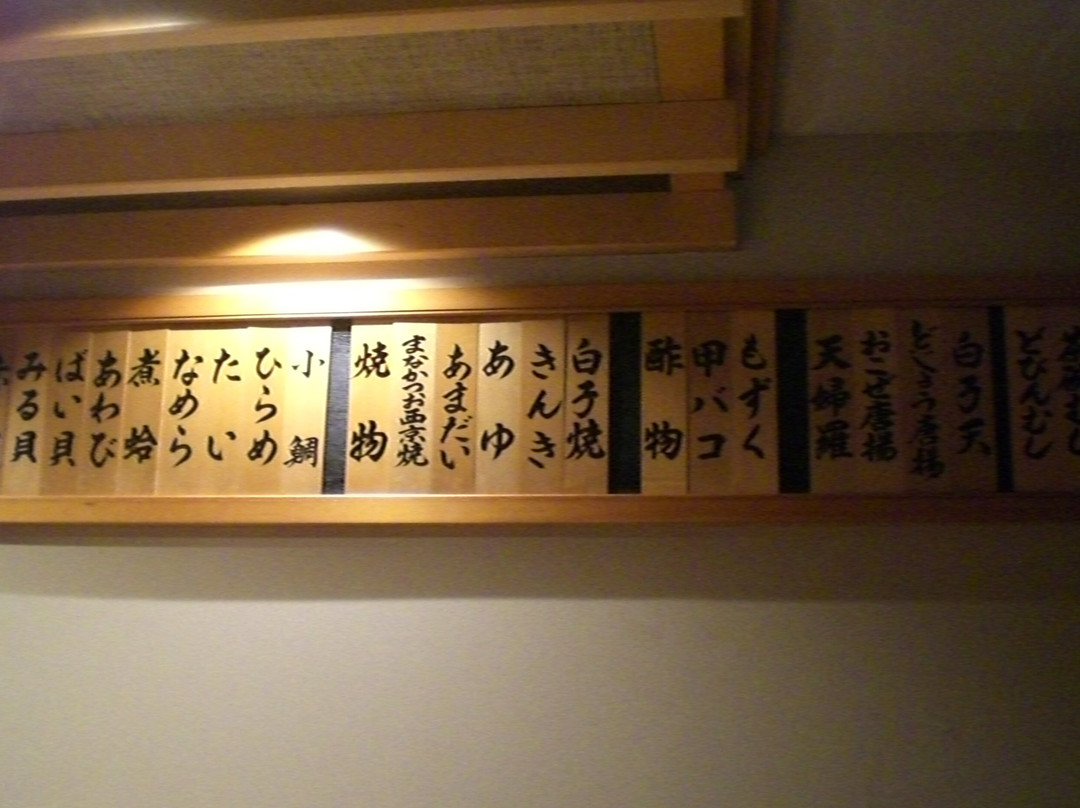 みる貝
ばい貝
あわび
煮蛤
なめら
たい
ひらめ
小鯛
焼物
まなかつお西京焼
あまだい
あゆ
きんき
白子焼
酢物
甲バコ
もずく
天婦羅
おこぜ唐揚
どじょう唐揚
白子天
どびんむし